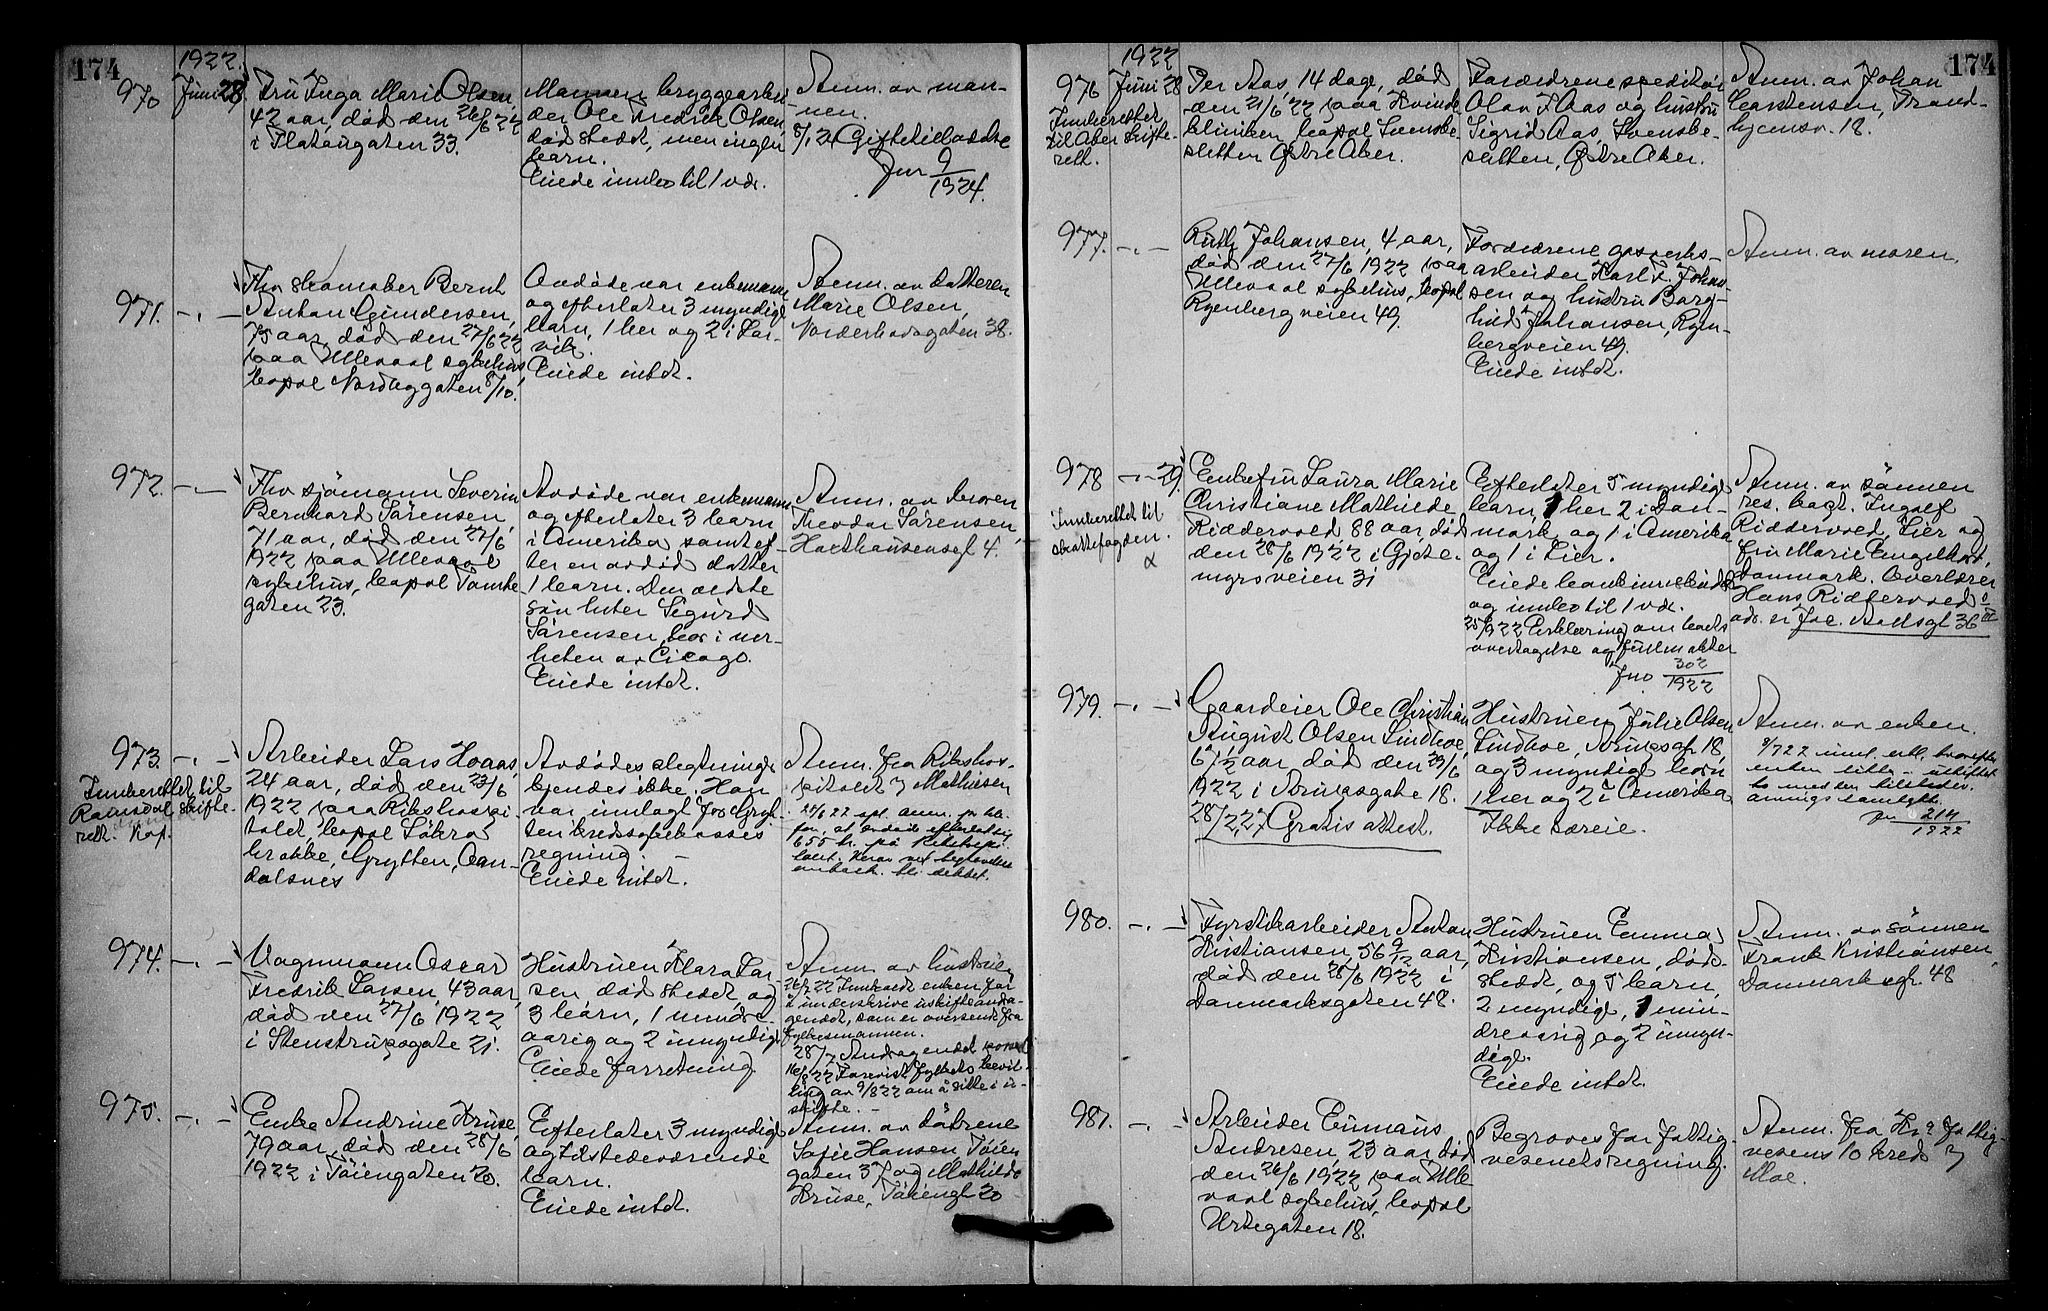 174
1922.
970
Juni 28
Fru Inga Marie Olsen,
42 aar, død den 26/6 22
i Platougaten 33.
Mannen bryggearbei-
der Ole Fredrik Olsen
død stedet, men ingen
barn.
Eiede innbo til 1 vær.
Anm. av man-
nen.
8/1 24 Giftetilladelse
Jnr 9/1924.
971.
Fhv skomaker Bernt
Anton Gundersen,
75 aar, død den 27/6 22
paa Ullevaal sykehus
bopæl Norbyggaten 8/10.
Avdøde var enkemann
og efterlater 3 myndige
barn, 1 her og 2 i Lar-
vik.
Eiede intet.
Anm. av datteren
Marie Olsen,
Norderhovsgaten 38.
972.
Fhv sjömann Severin
Bernhard Sørensen,
71 aar, død den 27/6
1922 paa Ullevaal
sykehus, bopæl Tomte
gaten 23.
Avdøde var enkemann
og efterlater 3 barn
i Amerika samt ef-
ter en avdød datter
1 barn. Den ældste
søn heter Sigurd
Sørensen, bor i nær-
heten av Cicago.
Eiede intet.
Anm. av broren
Theodor Sørensen,
Holthausensgt 4.
973.
Innberettet til
Romsdal skifte-
rett.
Arbeider Lars Hoaas,
24 aar, død den 23/6
1922 paa Rikshospi-
talet, bopæl
Grytten, Aan-
dalsnes
Avdødes slegtninge
kjendes ikke. Han
var innlagt for Gryt-
ten kredssykekasses
regning.
Eiede intet.
Anm. fra Rikshos-
pitalet v Mathisen
655 kr. på Rikshospi-
talet.
974.
Vognmann Oscar
Fredrik Larsen, 43 aar,
død den 27/6 1922
i Stenstrupsgate 21.
Hustruen Klara Lar-
sen, død stedet, og
3 barn, 1 mindre-
aarig og 2 umyndige
Eiede forretning.
Anm. av hustruen
26/7 22 Innkaldt enken for
å underskrive uskifteandra-
gendet, som er oversendt fra
fylkesmannen.
28/7 Andragendet
16/8 22 Forevist fylkets bevil-
ling av 9/8 22 om å sitte i u-
skifte.
975.
Enke Andrine Kruse,
79 aar, død den 28/6
1922 i Tøiengaten 20.
Efterlater 3 myndige
og tilstedeværende
barn.
Eiede intet.
Anm. av døtrene
Sofie Hansen, Tøien
gaten 37 og Mathilde
Kruse, Tøiengt 20
174
1922
976
Juni 28
Innberettet
til Aker skifte-
rett.
Per Aas, 14 dage, død
den 21/6 22 paa Kvinde
kliniken, bopæl Svenske-
sletten Østre Aker.
Forældrene speditør
Olav F Aas og hustru
Sigrid Aas, Svenske-
sletten, Østre Aker.
Anm. av Johan
Carstensen, Trond-
hjemsv. 18.
977.
Ruth Johansen, 4 aar,
død den 27/6 1922 paa
Ullevaal sykehus, bopæl
Ryenbergveien 49.
Forældrene gasverks-
arbeider Karl F Johan-
sen og hustru Borg-
hild Johansen, Ryen-
bergveien 49.
Eiede intet.
Anm. av moren.
978
29.
Innberettet til
skattefogden.
Enkefru Laura Marie
Christiane Mathilde
Riddervold 88 aar, død
den 28/6 1922 i Gjete-
myrsveien 31
Efterlater 5 myndige
barn, 1 her 2 i Dan-
mark, og 1 i Amerika
og 1 i Lier.
Eiede bankinnskudd
og innbo til 1 vær.
25/9 22 Erklæring om boets
overtagelse og fullmakter
Jnr 302/1922
Anm. av sønnen
res. kapt. Ingolf
Riddervold, Lier og
fru Marie Engelhart,
Danmark. Overlærer
Hans Riddervold
adr. er Joc. Aallsgt 36
979.
Gaardeier Ole Christian
August Olsen Lindhoe,
67 1/2 aar, død den 29/6
1922 i Brinpsgate 18.
28/2 27 Gratis attest.
Hustruen Julie Olsen
Lindhoe, 18
og 3 myndige barn
1 her og 2 i Amerika.
Ikke særeie.
Anm. av enken.
Jnr 214/1922
980.
Fyrstikarbeider Anton
Kristiansen, 56 9/12 aar,
død den 28/6 1922 i
Danmarksgaten 48.
Hustruen Emma
Kristiansen, død-
stedet, og 5 barn,
2 myndige, 1 min-
dreaarig og 2 umyn-
dige.
Eiede intet.
Anm. av sønnen
Frank Kristiansen,
Danmarksgt. 48
981.
Arbeider Emmaus
Andresen, 23 aar, død
den 26/6 1922 paa Ulle
vaal sykehus, bopæl
Urtegaten 18.
Begraves for fattig-
vesenets regning.
Anm. fra Kr a fattig-
vesens 10 kreds v
Moe.